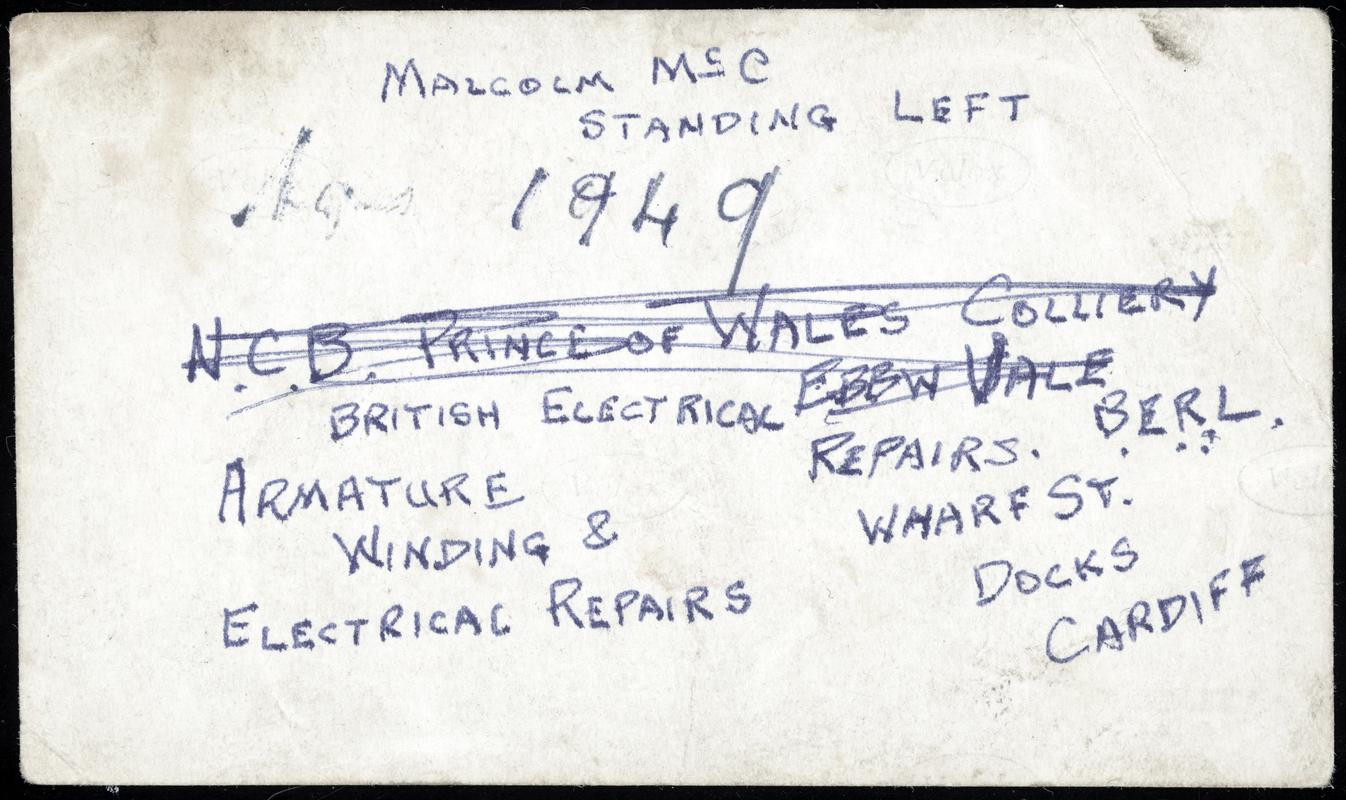 MALCOLM McC
STANDING LEFT
1949
N.C.B. PRINCE OF WALES COLLIERY
EBBW VALE
BRITISH ELECTRICAL
REPAIRS. B.E.R.L.
WHARF ST.
DOCKS
CARDIFF
ARMATURE
WINDING &
ELECTRICAL REPAIRS
Velox
Velox